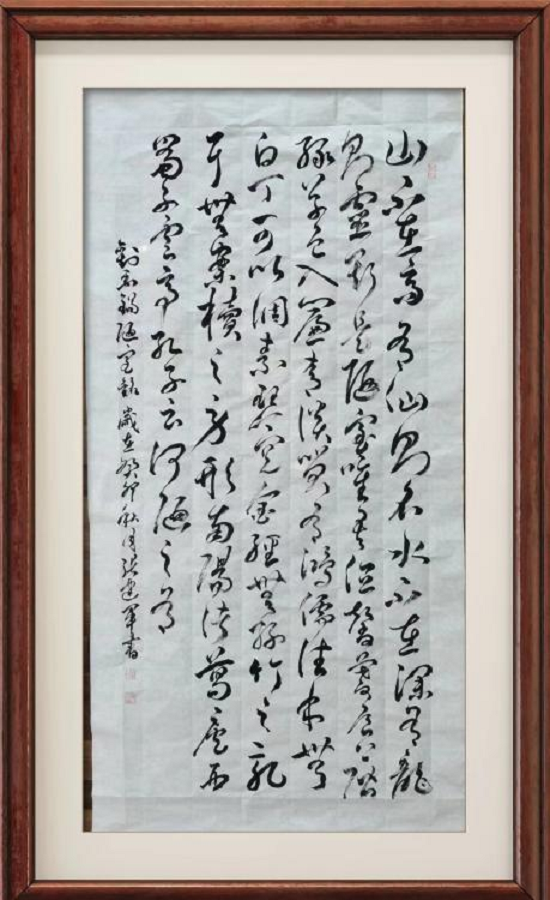 山不在高有仙則名水不在深有龍
則靈斯是陋室唯吾德馨苔痕上階
綠草色入簾青談笑有鴻儒往來無
白丁可以調素琴閱金經無絲竹之亂
耳無案牘之勞形南陽諸葛廬西
蜀子雲亭孔子云何陋之有
劉禹錫陋室銘歲在癸卯秋月張建軍書